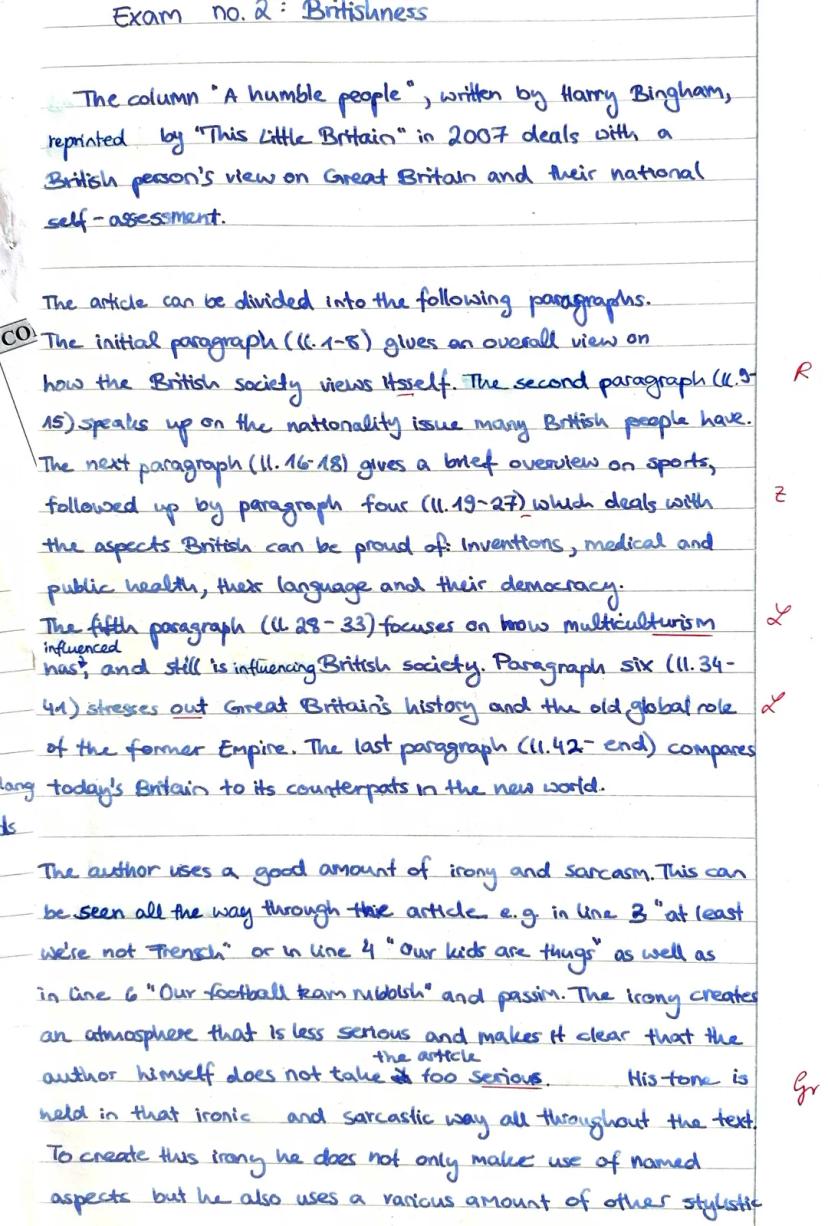 Exam no. 2: Britishness
The column "A humble people", written by Harry Bingham,
reprinted by "This Little Britain" in 2007 deals with a
British person's view on Great Britain and their national
self-assessment.
The article can be divided into the following paragraphs.
CO
The initial paragraph (ll. 1-8) gives an overall view on
how the British society views itsself. The second paragraph (ll. 9- R
15) speaks up on the nationality issue many British people have.
The next paragraph (ll. 16-18) gives a brief overview on sports,
followed up by paragraph four (ll. 19-27) which deals with Z
the aspects British can be proud of: Inventions, medical and
public health, their language and their democracy.
The fifth paragraph (ll. 28-33) focuses on how multiculturism L
influenced
has, and still is influencing British society. Paragraph six (ll. 34-
41) stresses out Great Britain's history and the old global role L
of the former Empire. The last paragraph (ll. 42- end) compares
lang today's Britain to its counterpats in the new world.
ds
The author uses a good amount of irony and sarcasm. This can
be seen all the way through the article e.g. in line 3 "at least
we're not Frensch" or in line 4 "Our kids are thugs" as well as
in line 6 "Our football team rubbish" and passim. The irony creates
an atmosphere that is less serious and makes it clear that the
the article
author himself does not take too serious. His tone is Gr
held in that ironic and sarcastic way all throughout the text.
To create this irony he does not only make use of named
aspects but he also uses a various amount of other stylistic